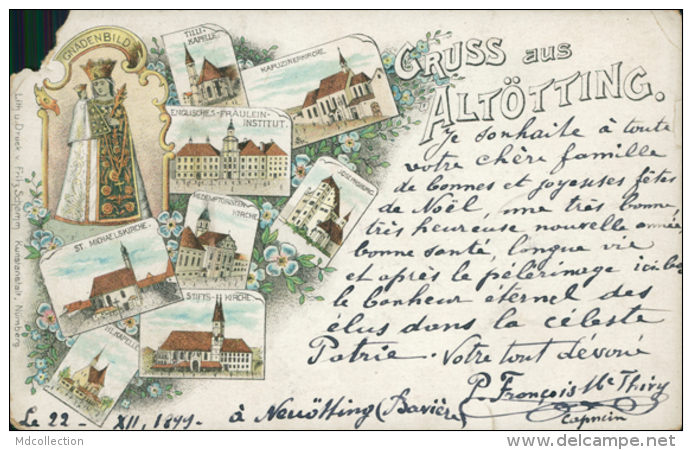 GNADENBILD
TILLI-
KAPELLE.
KAPUZINERKIRCHE.
ENGLISCHES-FRÄULEIN-
INSTITUT.
REDEMPTORISTEN-
KIRCHE
ST. MICHAELSKIRCHE.
STIFTS-KIRCHE
HL. KAPELLE
Lith. u. Druck v. Fritz Schlamm Kunstanstalt, Nürnberg
GRUSS aus
ALTÖTTING.
Je souhaite à toute
votre chère famille
de bonnes et joyeuses fêtes
de Noël, une très bonne,
très heureuse nouvelle année,
bonne santé, longue vie
et après le pèlerinage ici bas
le bonheur éternel des
élus dans la céleste
Patrie. Votre tout dévoué
P. François M. Thiry
Capucin
Le 22 - XII, 1899. à Neuötting (Bavière)
Mdcollection
www.delcampe.net